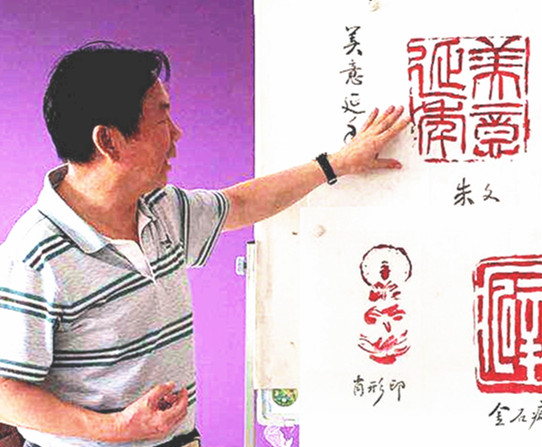 美意延年
美意延年
朱文
肖形印
金石